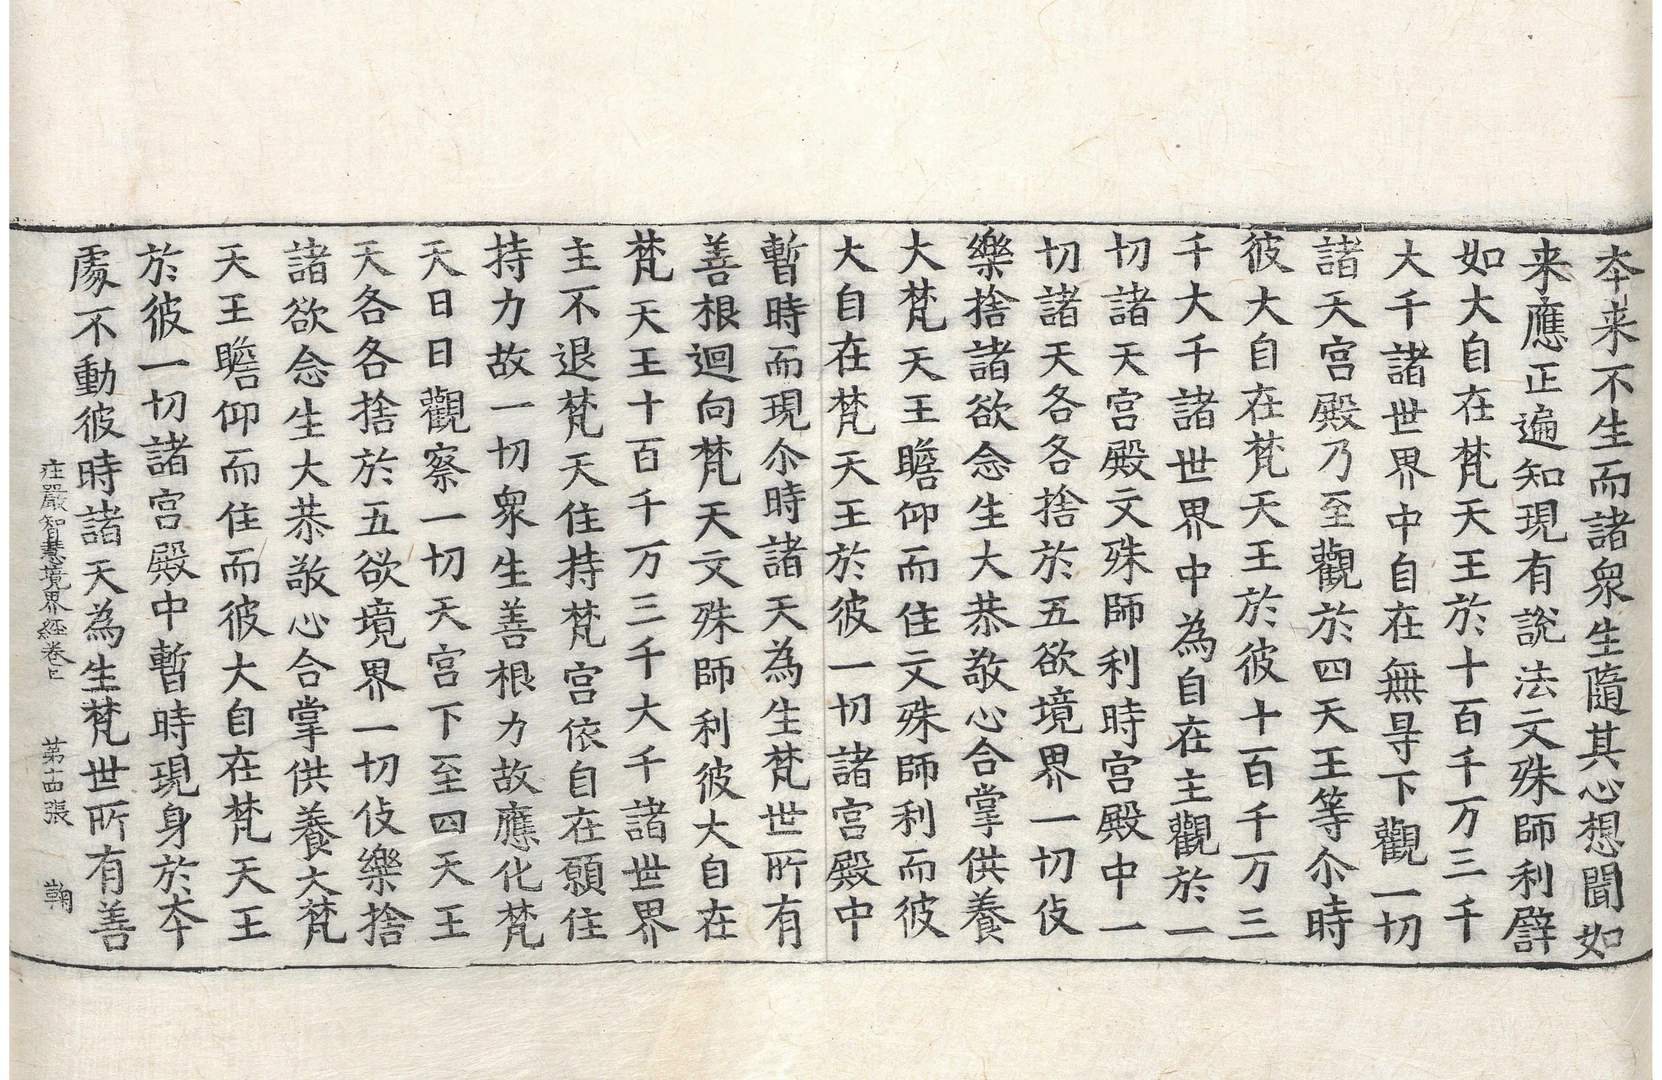 夲来不生而諸衆生隨其心想聞如
来應正遍知現有說法文殊師利譬
如大自在梵天王於十百千万三千
大千諸世界中自在無㝵下觀一切
諸天宫殿乃至觀於四天王等尒時
彼大自在梵天王於彼十百千万三
千大千諸世界中為自在主觀於一
切諸天宫殿文殊師利時宫殿中一
切諸天各各捨於五欲境界一切伎
樂捨諸欲念生大恭敬心合掌供養
大梵天王瞻仰而住文殊師利而彼
大自在梵天王於彼一切諸宫殿中
暫時而現尒時諸天為生梵世所有
善根迴向梵天文殊師利彼大自在
梵天王十百千万三千大千諸世界
主不退梵天住持梵宫依自在願住
持力故一切衆生善根力故應化梵
天日日觀察一切天宫下至四天王
天各各捨於五欲境界一切伎樂捨
諸欲念生大恭敬心合掌供養大梵
天王瞻仰而住而彼大自在梵天王
於彼一切諸宫殿中暫時現身於夲
處不動彼時諸天為生梵世所有善
庄嚴智慧境界經卷上 第十四張 鞠